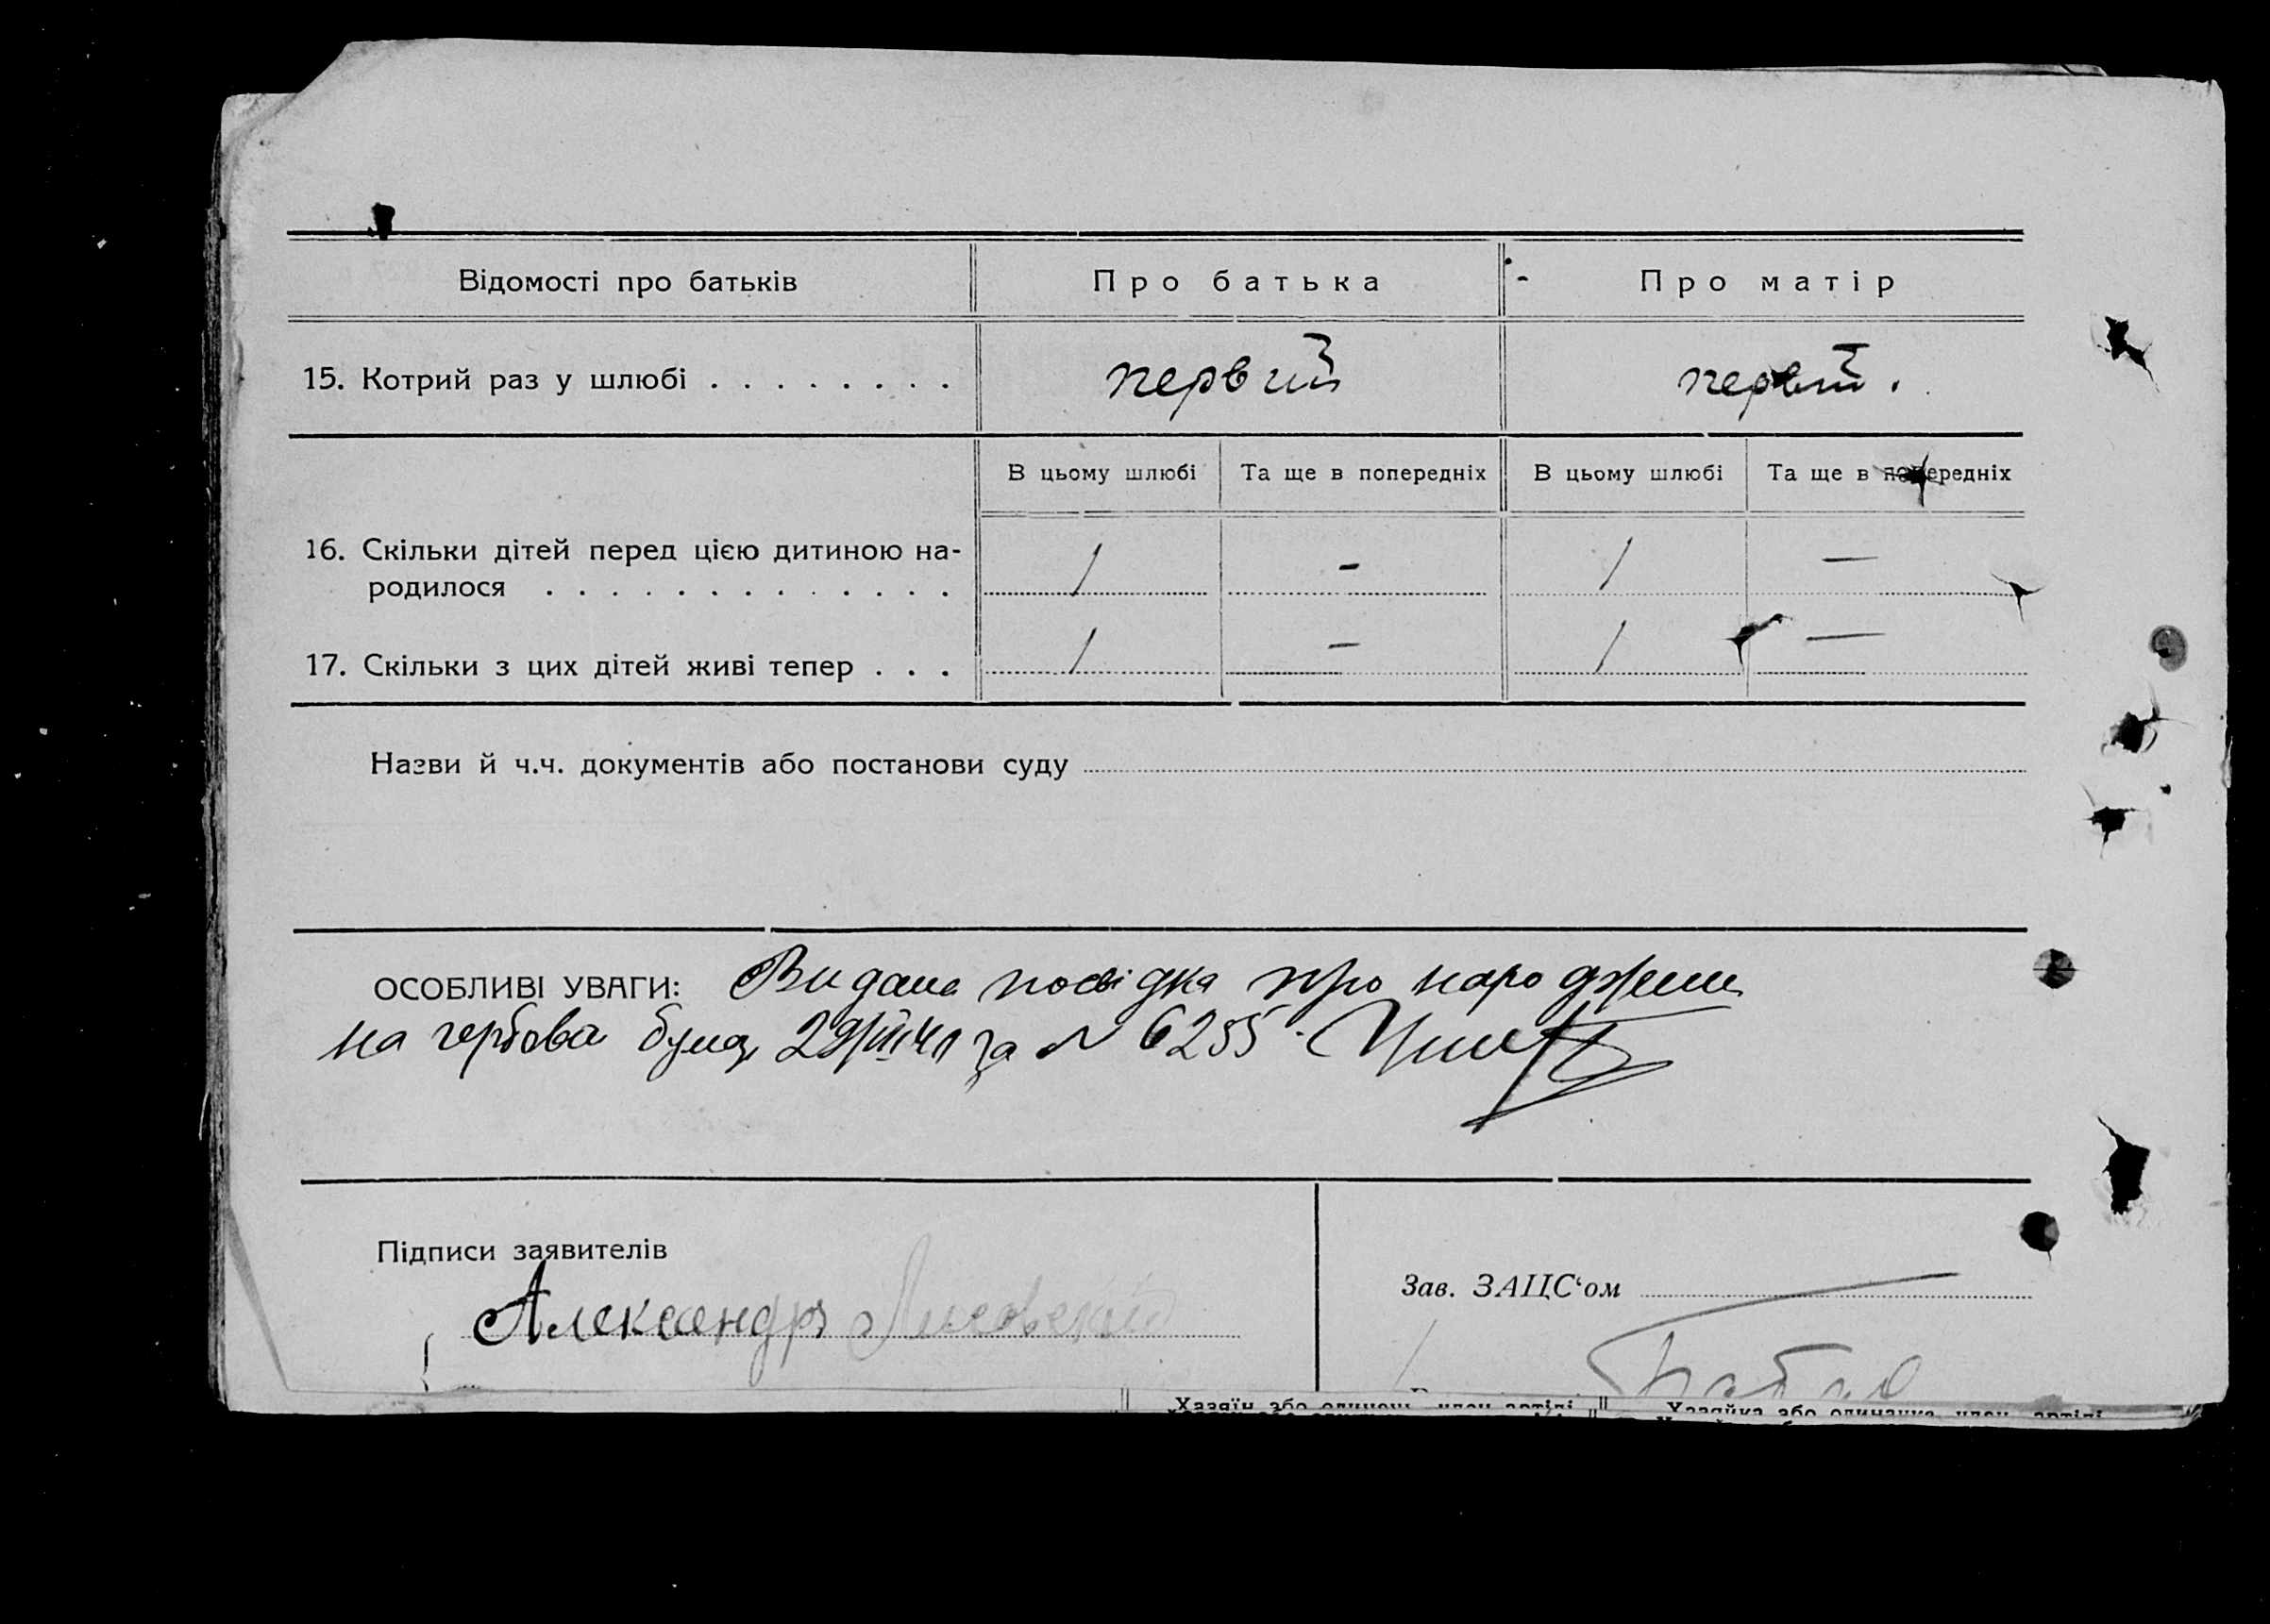 Відомості про батьків Про батька Про матір
15. Котрий раз у шлюбі . . . . . . . . первий первий.
В цьому шлюбі Та ще в попередніх В цьому шлюбі Та ще в попередніх
16. Скільки дітей перед цією дитиною на-
родилося . . . . . . . . . . . . . 1 - 1 —
17. Скільки з цих дітей живі тепер . . . 1 - 1 —
Назви й ч.ч. документів або постанови суду
ОСОБЛИВІ УВАГИ: Видана посвідка про народженн
на гербова за № 6255
Підписи заявителів
Зав. ЗАЦС‘ом
Александр Лисовский
Хазяїн або одинач. член артілі Хазяйка або одиначка член артілі